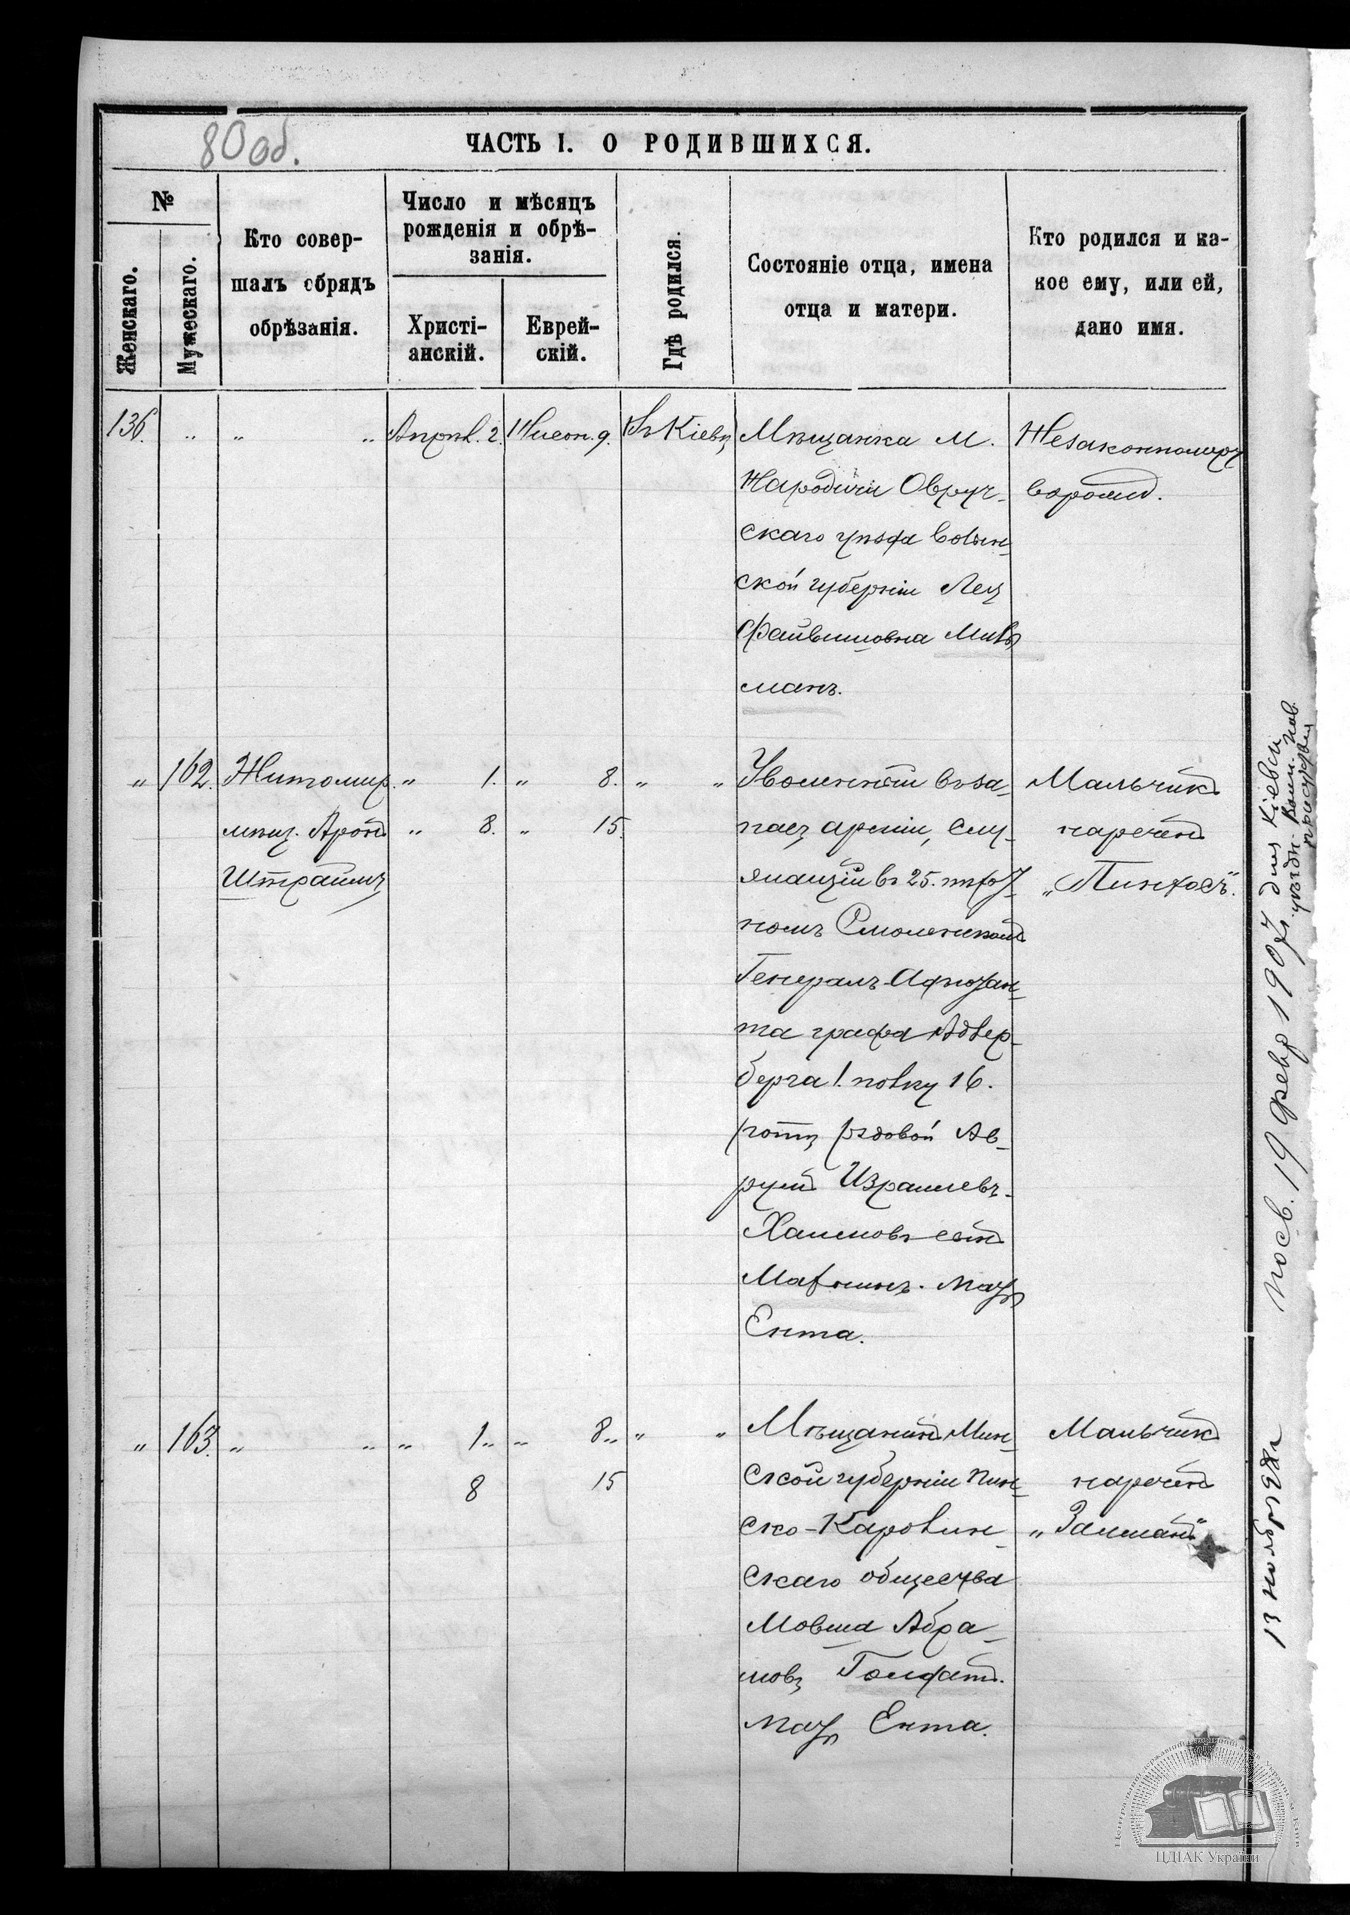 80 об.
ЧАСТЬ I. О РОДИВШИХСЯ.
№
Женскаго.
Мужескаго.
Кто совер-
шалъ обрядъ
обрѣзанія.
Число и мѣсяцъ
рожденія и обрѣ-
занія.
Христі-
анскій.
Еврей-
скій.
Гдѣ родился.
Состояніе отца, имена
отца и матери.
Кто родился и ка-
кое ему, или ей,
дано имя.
136. „ „ „ Апрѣл. 2. Нисон. 9. Въ Кіевѣ
Мѣщанка м.
Народичи Овруч-
скаго уѣзда Волын-
ской губерніи Лея
Файвишовна Миль
манъ.
„ 162. Житомир.
мѣщ. Аронъ
Штраймъ
„ 1. „ 8. „ „
„ 8. „ 15.
Уволенный въ за-
пасъ арміи, слу-
жащій въ 25. пѣхот-
номъ Смоленскомъ
Генералъ-Адъютан-
та графа Адлер-
берга 1. полку 16.
роты рядовой Ав-
румъ Израилевъ-
Хаимовъ сынъ
мать
Ента.
Мальчикъ
нареченъ
„Пинхосъ“.
„ 163. „ „ „ 1„ „ 8„ „ „
8 15
Мѣщанинъ Мин-
ской губерніи Пин-
ско-Каролин-
скаго общества
Мовша Абра-
мовъ
мать Ента.
Мальчикъ
нареченъ
„Залманъ“
13 ноября 98 г.
19 февр 1907 г. для Кіевск
уѣздн. Воин. пов.
присутствія
ЦДІАК України